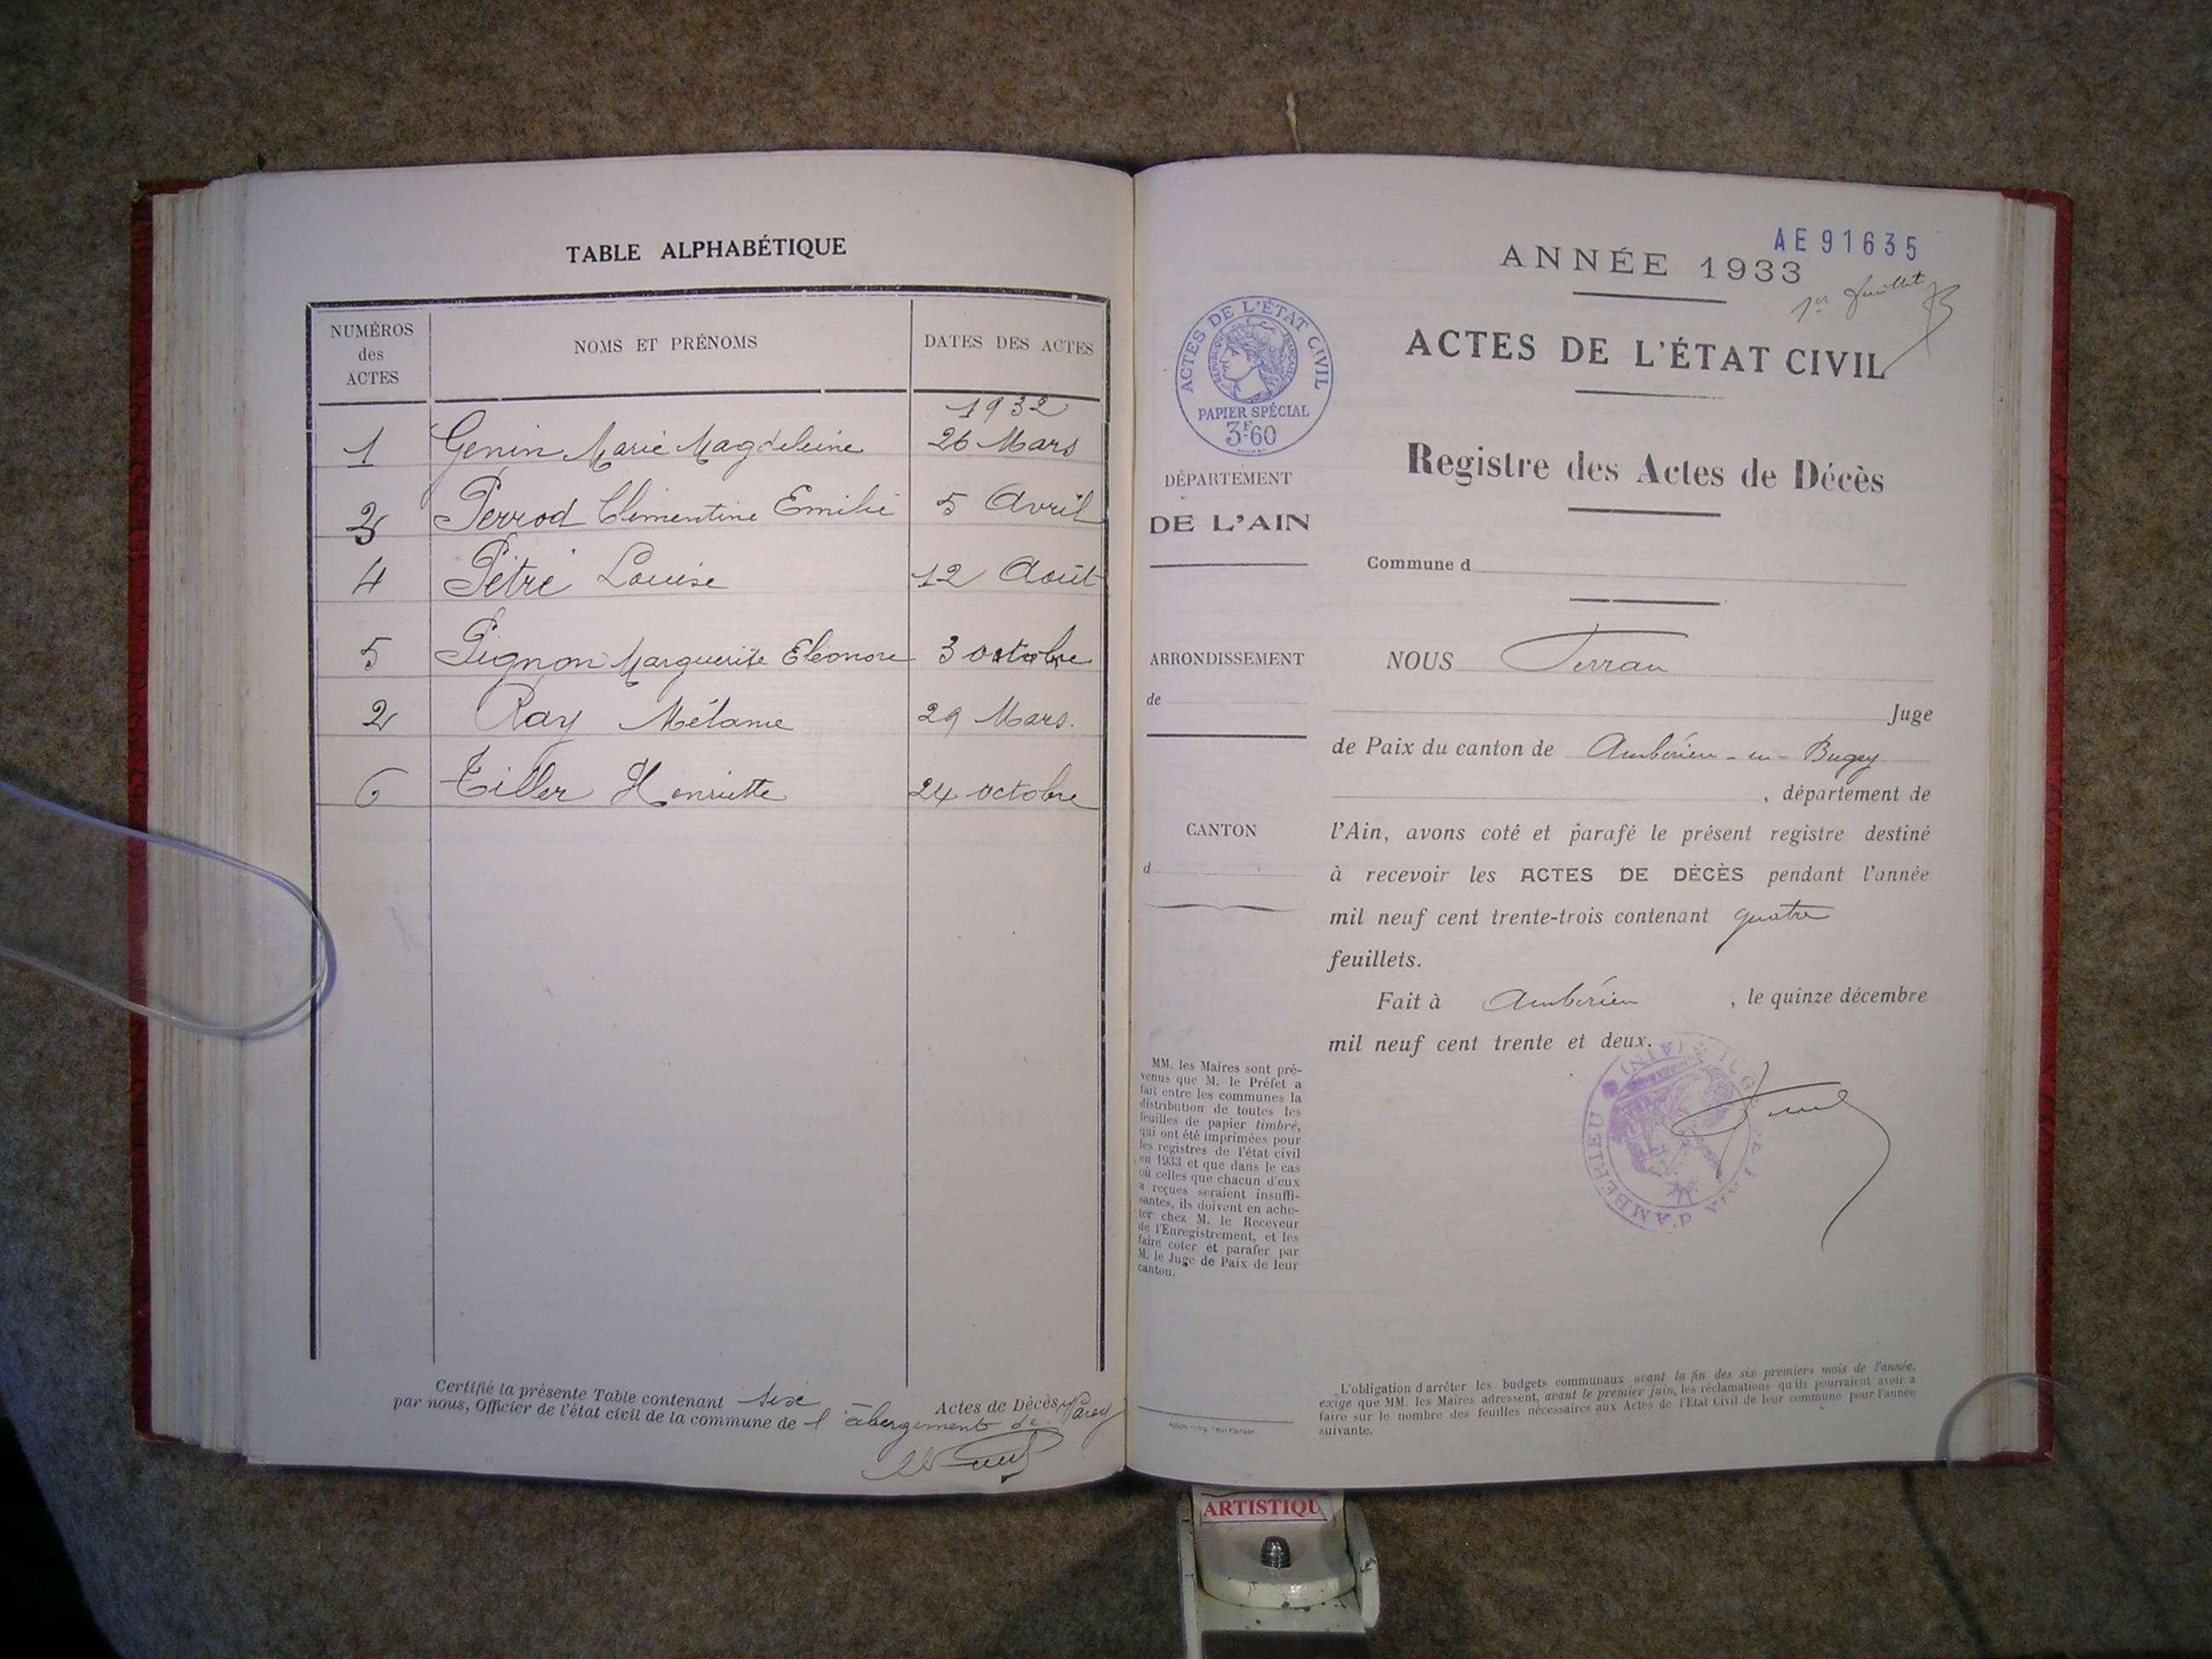 TABLE ALPHABÉTIQUE
NUMÉROS des ACTES
NOMS ET PRÉNOMS
DATES DES ACTES
1932
1 Genin Marie Magdeleine 26 Mars
3 Perrod Clémentine Emilie 5 Avril
4 Pétré Louise 12 Août
5 Pignon Marguerite Eléonore 3 octobre
2 Ray Mélanie 29 Mars.
6 Tiller Henriette 24 octobre
Certifié la présente Table contenant six Actes de Décès
par nous, Officier de l'état civil de la commune de l'abergement de Varey
AE 91635
ANNÉE 1933
1er feuillet
ACTES DE L'ÉTAT CIVIL
Registre des Actes de Décès
ACTES DE L'ÉTAT CIVIL
RÉPUBLIQUE FRANÇAISE
PAPIER SPÉCIAL
3F60
DÉPARTEMENT
DE L'AIN
ARRONDISSEMENT
de
CANTON
d
MM. les Maires sont pré-
venus que M. le Préfet a
fait entre les communes la
distribution de toutes les
feuilles de papier timbré,
qui ont été imprimées pour
les registres de l'état civil
en 1933 et que dans le cas
où celles que chacun d'eux
a reçues seraient insuffi-
santes, ils doivent en ache-
ter chez M. le Receveur
de l'Enregistrement, et les
faire coter et parafer par
M. le Juge de Paix de leur
canton.
Commune d
NOUS Ferran
Juge
de Paix du canton de Ambérieu-en-Bugey
, département de
l'Ain, avons coté et parafé le présent registre destiné
à recevoir les ACTES DE DÉCÈS pendant l'année
mil neuf cent trente-trois contenant quatre
feuillets.
Fait à Ambérieu , le quinze décembre
mil neuf cent trente et deux.
D'AMBÉRIEU (AIN)
L'obligation d'arrêter les budgets communaux avant la fin des six premiers mois de l'année,
exige que MM. les Maires adressent, avant le premier juin, les réclamations qu'ils pourraient avoir à
faire sur le nombre des feuilles nécessaires aux Actes de l'Etat Civil de leur commune pour l'année
suivante.
ARTISTIQU